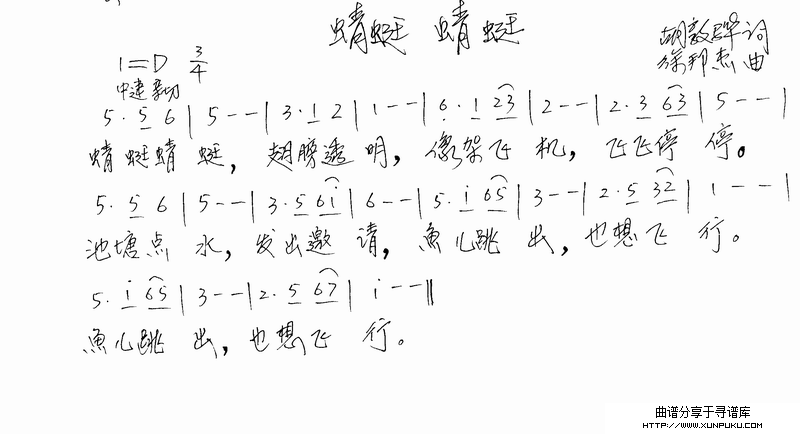 蜻蜓 蜻蜓
胡敦骅词
1=D 3/4
徐邦杰曲
中速 亲切
5· 5 6 | 5 - - | 3· 1 2 | 1 - - | 6· 1 23 | 2 - - | 2· 3 63 | 5 - - |
蜻蜓蜻 蜓，翅膀透 明，像架飞 机，飞飞停 停。
5· 5 6 | 5 - - | 3· 5 6i | 6 - - | 5· i 65 | 3 - - | 2· 5 32 | 1 - - |
池塘点 水，发出邀 请，魚儿跳 出，也想飞 行。
5· i 65 | 3 - - | 2· 5 67 | i - - ‖
魚儿跳 出，也想飞 行。
曲谱分享于寻谱库
HTTP://WWW.XUNPUKU.COM